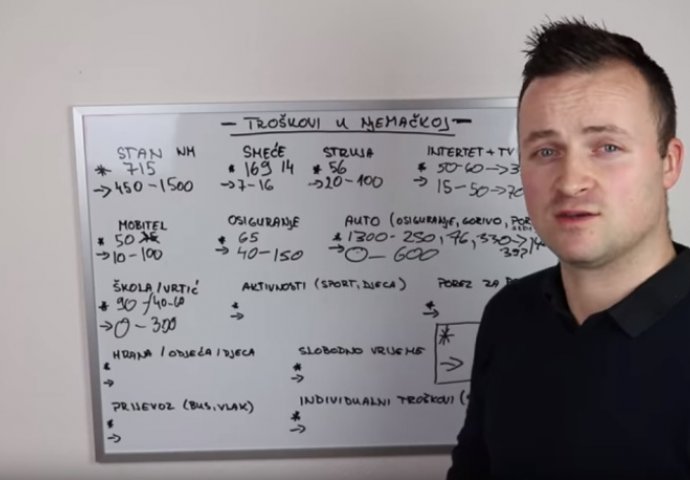 — TROŠKOVI U NJEMAČKOJ —
STAN NM
* 715
→ 450 – 1500
SMEĆE
* 169 14
→ 7-16
STRUJA
* 56
→ 20-100
INTERTET + TV
* 50-60 →
15 – 50 →
MOBITEL
* 50
→ 10-100
OSIGURANJE
* 65
→ 40-150
AUTO (OSIGURANJE, GORIVO,
* 1300 - 250, 46, 330 →
→ 0 – 600
ŠKOLA/VRTIĆ
* 90 /40-60
→ 0-300
AKTIVNOSTI (SPORT, DJECA)
*
→
POREZ ZA
*
→
HRANA / ODJEĆA / DJECA
*
→
SLOBODNO VRIJEME
*
→
*
→
PRIJEVOZ (BUS, VLAK)
*
→
INDIVIDUALNI TROŠKOVI (
*
→